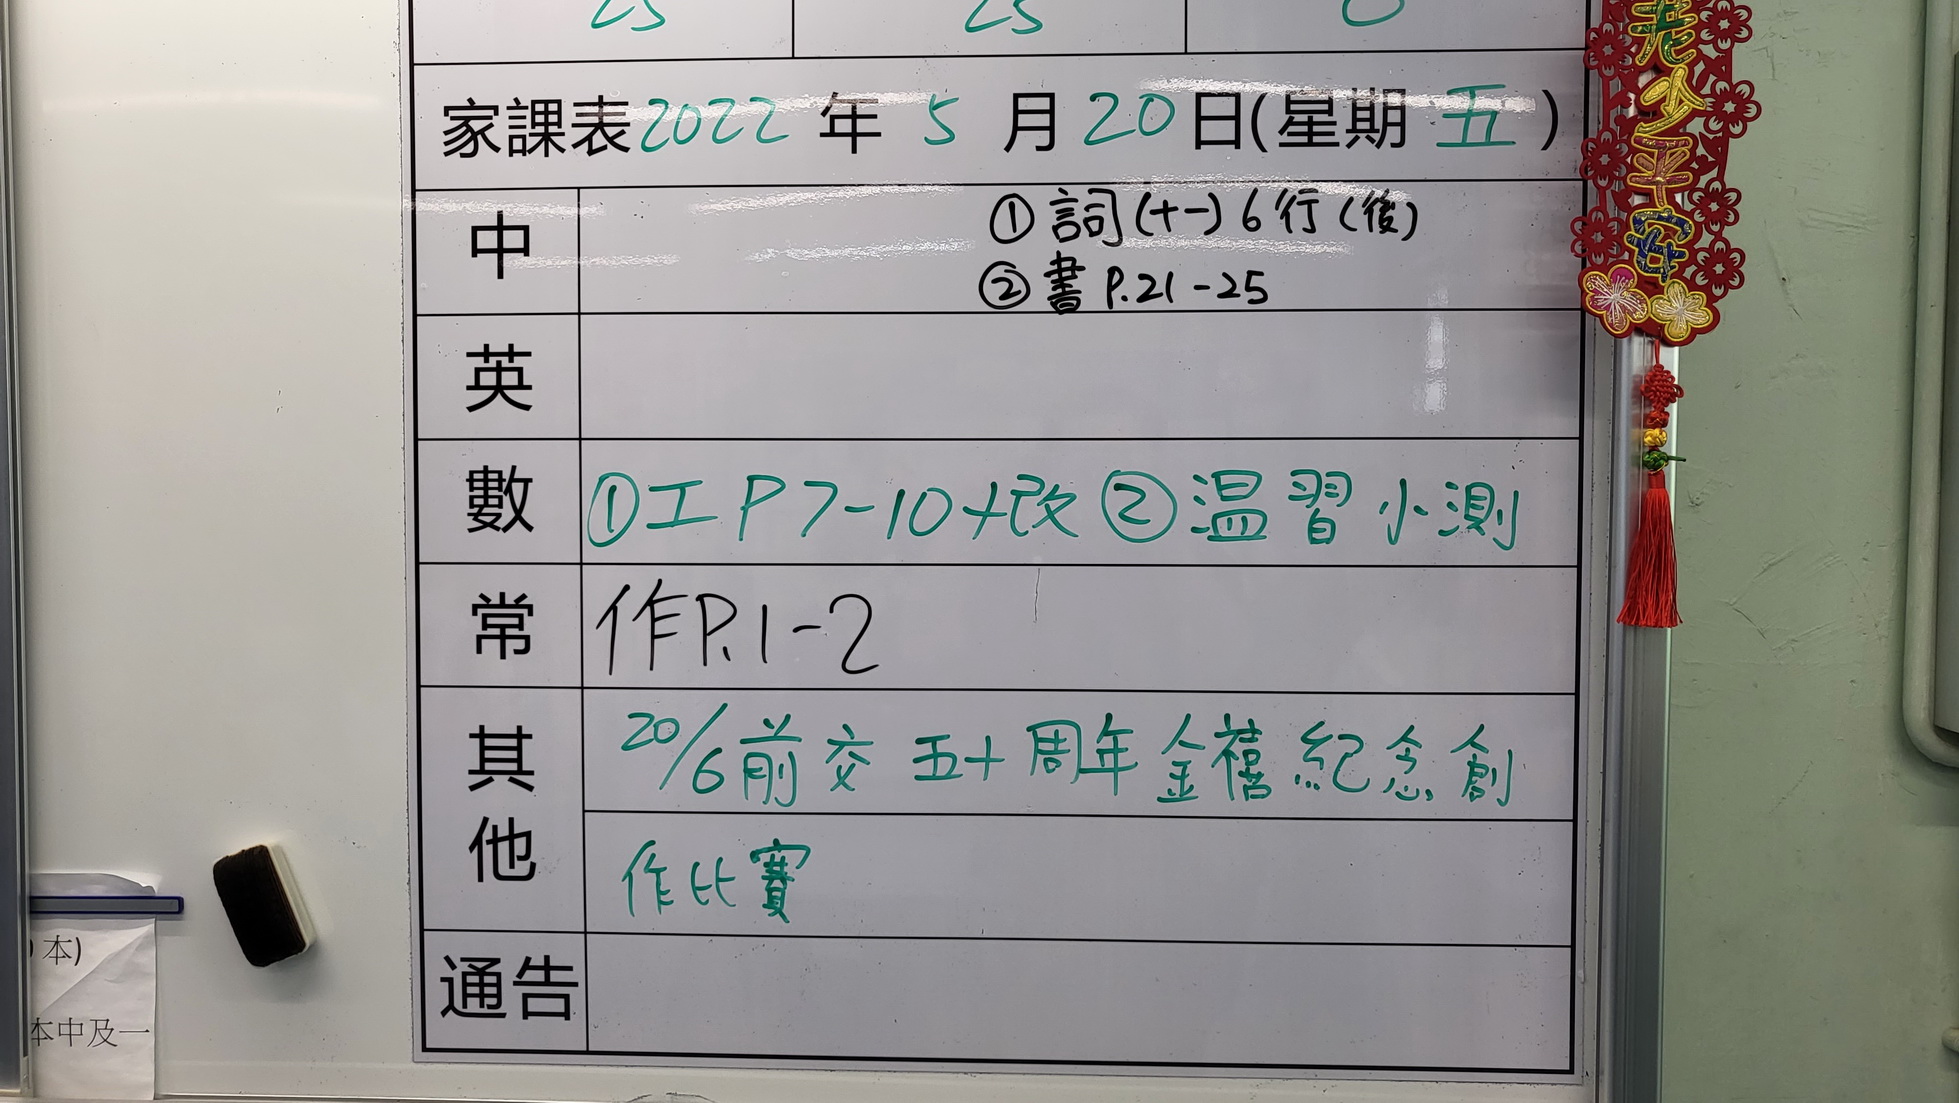 25 25 0
家課表2022年5月20日(星期五)
中
①詞(十一)6行(後)
②書P.21-25
英
數
①工P7-10+改②温習小測
常
作P.1-2
其他
20/6前交五十周年金禧紀念創
作比賽
通告
老少平安
本)
本中及一